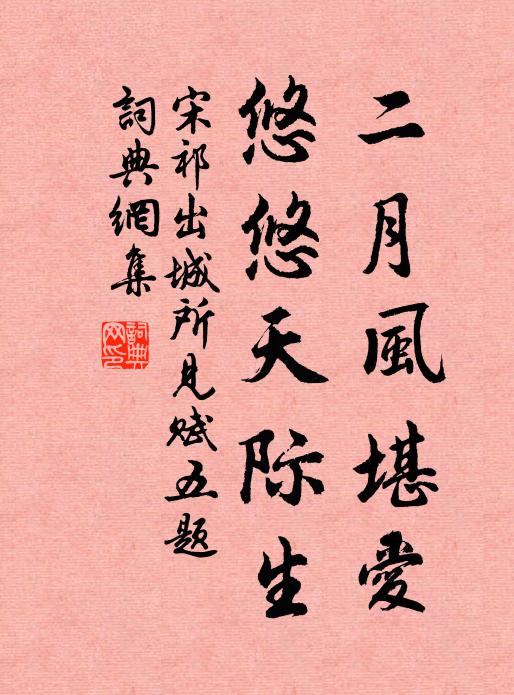 二月風堪愛
悠悠天际生
宋祁出城所見赋五题
詞典網集
詞典
网印